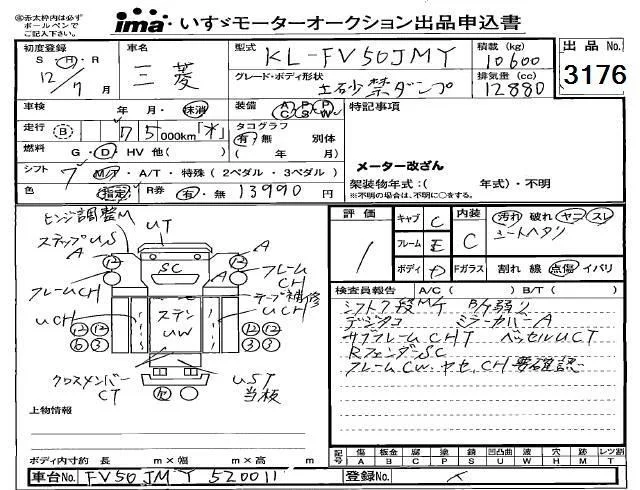 ※赤太枠内は必ず
ボールペンで
ご記入下さい。
ima いすゞモーターオークション出品申込書
初度登録 車名 型式 KL-FV50JMY 積載(kg) 出品No.
S・H・R 三菱 グレード・ボディ形状 10600 3176
12/7月 土砂禁ダンプ 排気量(cc)
12880
車検 年・月・抹消 装備 AC PS PW 特記事項
走行 (B) 75000km「水」 タコグラフ
有・無 別体
燃料 G・D・HV 他( ) ( 年 月) メーター改ざん
シフト 7 M/T・A/T・特殊(2ペダル・3ペダル) 架装物年式:( 年式)・不明
色 指定 R券 有・無 13990円 ※不明の場合は、不明に○をする。
ヒンジ調整M UT
ステップUS A A
評価 1 キャブ C 内装 C 汚れ 破れ ヤニ スレ
フレーム E シートヘタリ
ボディ D Fガラス 割れ 線 点傷 イバリ
SC フレームCH
フレームCH テープ補修
UCH ステンUW UCH
12 12 12 12
6 3 3 3
クロスメンバーCT UST
当板
検査員報告 A/C( ) B/T( )
シフト7段M/T B/ケ弱り
デジタコ ミラーカバーA
サブフレームCHT ベッセルUCT
RフェンダーSC
フレームCW.ヤセ.CH要確認
上物情報
ボディ内寸約 長 m×幅 m×高 m
記号 傷 板金 腐 塗 錆 凹凸曲 波 穴 跡 レツ割
A B C P S U W H M T
車台No. FV50JMY 520011 登録No.